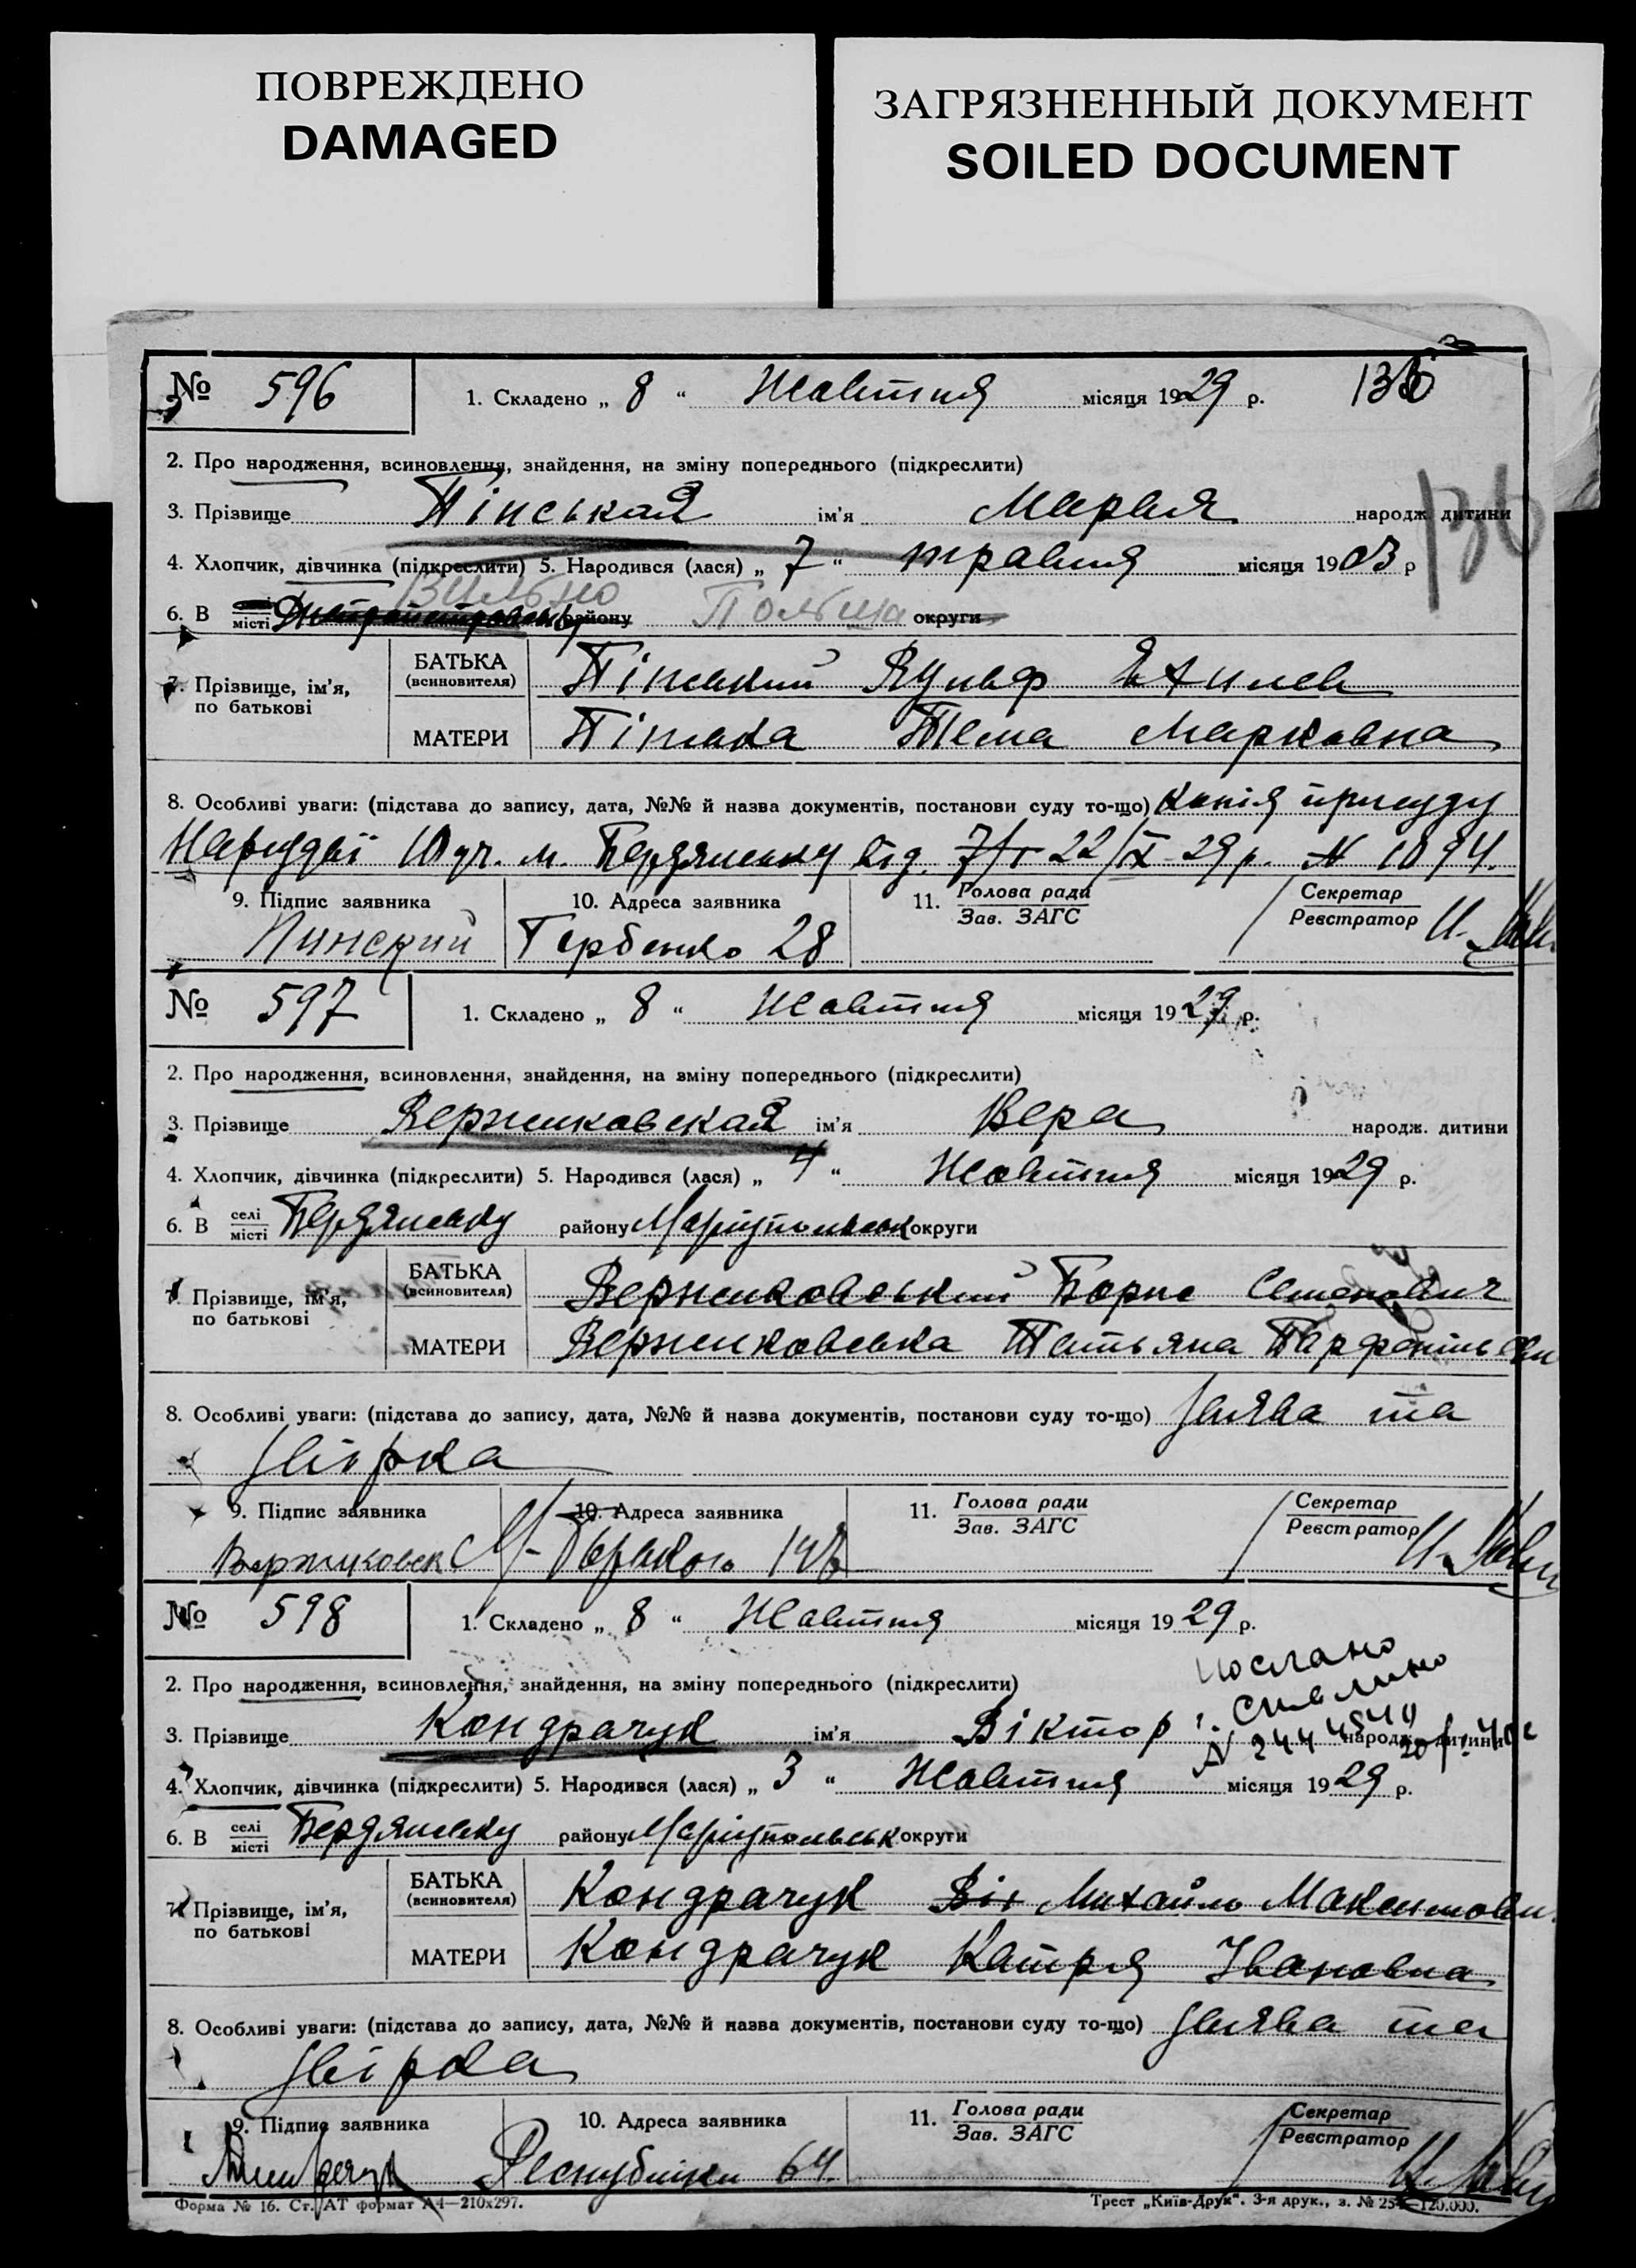 ПОВРЕЖДЕНО
DAMAGED
ЗАГРЯЗНЕННЫЙ ДОКУМЕНТ
SOILED DOCUMENT
№ 596 1. Складено „ 8 “ Жовтня місяця 1929 р.
136
2. Про народження, всиновлення, знайдення, на зміну попереднього (підкреслити)
3. Прізвище Пінськая ім'я Мария народж. дитини
4. Хлопчик, дівчинка (підкреслити) 5. Народився (лася) „ 7 “ травня місяця 1903 р
6. В місті Вильно району Польща округи
7. Прізвище, ім'я, по батькові
БАТЬКА (всиновителя) Пінський Вульф
МАТЕРИ Пінська Тема Марковна
8. Особливі уваги: (підстава до запису, дата, №№ й назва документів, постанови суду то-що) Копія присуду
м. Бердянську від 22/IX 29 р. № 1894.
9. Підпис заявника 10. Адреса заявника 11. Голова ради Зав. ЗАГС Секретар Реєстратор
Пинский Гербенко 28
№ 597 1. Складено „ 8 “ Жовтня місяця 1929 р.
2. Про народження, всиновлення, знайдення, на зміну попереднього (підкреслити)
3. Прізвище Вержиковская ім'я Вера народж. дитини
4. Хлопчик, дівчинка (підкреслити) 5. Народився (лася) „ 4 “ Жовтня місяця 1929 р.
6. В селі місті Бердянську району Маріупольськ округи
7. Прізвище, ім'я, по батькові
БАТЬКА (всиновителя) Вержиковський Борис Семенович
МАТЕРИ Вержиковська Татьяна
8. Особливі уваги: (підстава до запису, дата, №№ й назва документів, постанови суду то-що) Заява та
Звірка
9. Підпис заявника 10. Адреса заявника 11. Голова ради Зав. ЗАГС Секретар Реєстратор
Вержиковск М-Горького
№ 598 1. Складено „ 8 “ Жовтня місяця 1929 р.
2. Про народження, всиновлення, знайдення, на зміну попереднього (підкреслити)
послано
г. Сталино
3. Прізвище Кондрачук ім'я Віктор народж. дитини
4. Хлопчик, дівчинка (підкреслити) 5. Народився (лася) „ 3 “ Жовтня місяця 1929 р.
6. В селі місті Бердянську району Маріупольськ округи
7. Прізвище, ім'я, по батькові
БАТЬКА (всиновителя) Кондрачук Він Михайло Максимови
МАТЕРИ Кондрачук Катря Івановна
8. Особливі уваги: (підстава до запису, дата, №№ й назва документів, постанови суду то-що) Заява та
Звірка
9. Підпис заявника 10. Адреса заявника 11. Голова ради Зав. ЗАГС Секретар Реєстратор
Республіки 64.
Форма № 16. Ст. АТ формат А4—210х297. Трест „Київ-Друк“. 3-я друк., з. № 120.000.